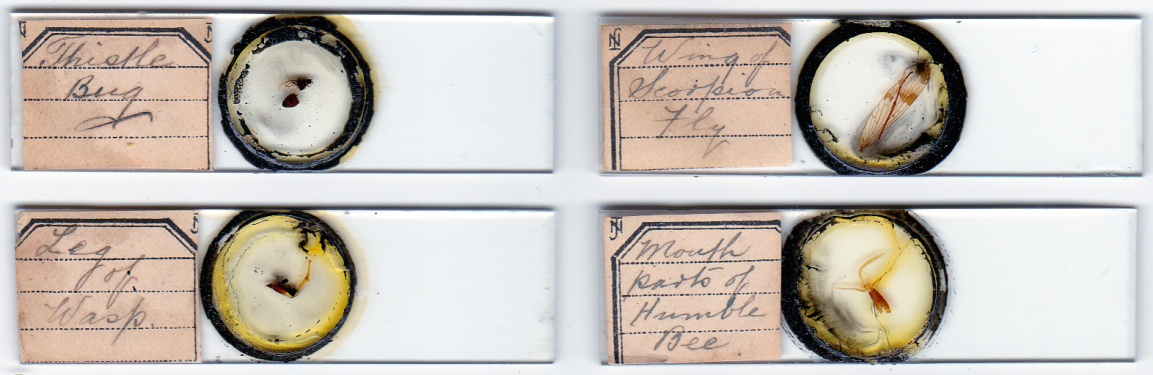 Thistle
Bug
Wing of
Scorpion
Fly
Leg
of
Wasp.
Mouth
parts of
Humble
Bee